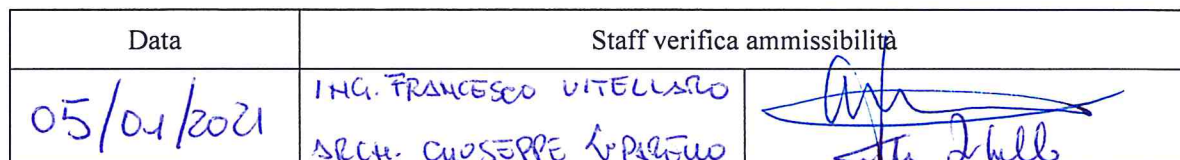 Data
Staff verifica ammissibilità
05/01/2021
ING. FRANCESCO VITELLARO
ARCH. GIUSEPPE